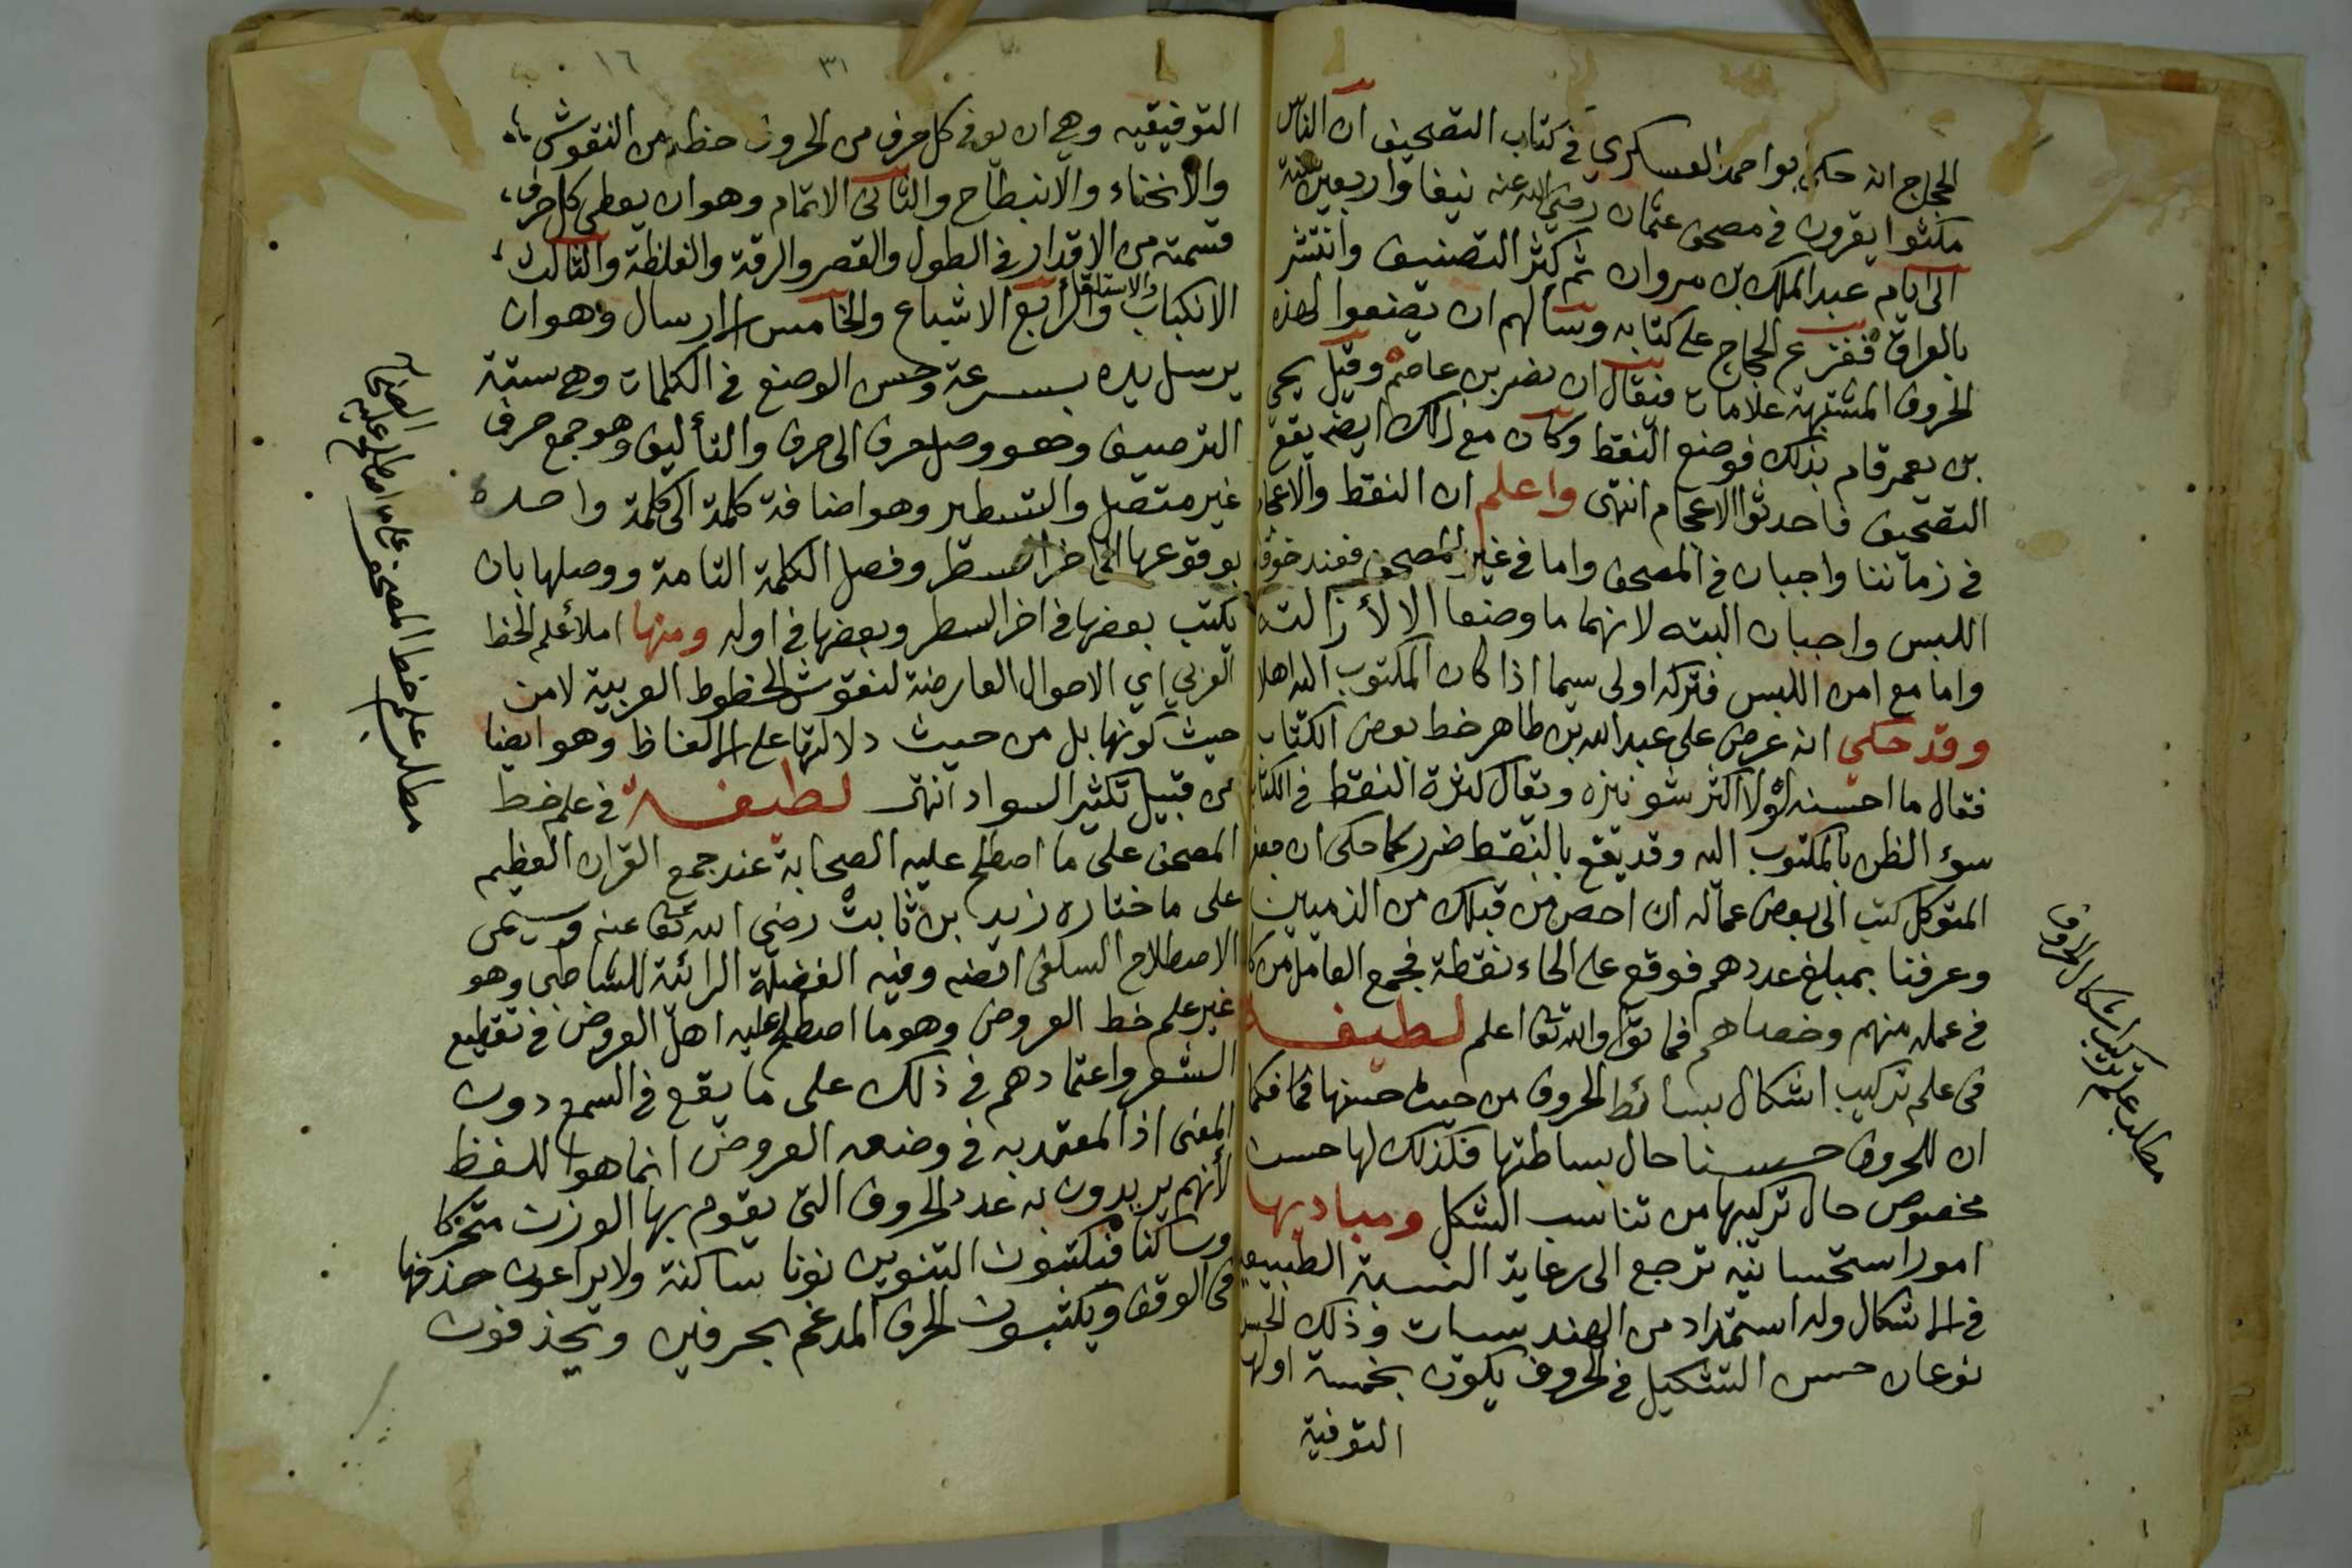 الحجاج انه حكى ابو احمد العسكري في كتاب التصحيف ان الناس
مكثوا يقرون في مصحف عثمان رضي الله عنه نيفا واربعين سنة
الى ايام عبد الملك بن مروان ثم كثر التصنيف وانتشر
بالعراق ففزع الحجاج على كتابه وسألهم ان يضعوا لهذه
الحروف المشتبهة علامات فيقال ان نصر بن عاصم وقيل يحيى
بن يعمر قام بذلك فوضع النقط وكان مع ذلك ايضه يقع
التصحيف فاحدثوا الاعجام انتهى واعلم ان النقط والاعجام
في زماننا واجبان في المصحف واما في غير المصحف فعند خوف
اللبس واجبان البته لانهما ما وضعا الا لأزالته
واما مع امن اللبس فتركه اولى سيما اذا كان المكتوب اليه اهلا
وقد حكي انه عرض على عبد الله بن طاهر خط بعض الكتاب
فقال ما احسنه لولا اكثر شونيزه ويقال كثرة النقط في الكتاب
سوء الظن بالمكتوب اليه وقد يقع بالنقط ضرر كما حكى ان جعفر
المتوكل كتب الى بعض عماله ان احص من قبلك من الذميين
وعرفنا بمبلغ عددهم فوقع على الحاء نقطة فجمع العامل من كان
في عمله منهم وخصاهم فماتوا والله تعا اعلم لطيفة
في علم تركيب اشكال بسائط الحروف من حيث حسنها فكما
ان للحروف حسنا حال بساطتها فكذلك لها حسن
مخصوص حال تركيبها من تناسب الشكل ومباديها
امور استحسانيه ترجع الى رعاية النسبة الطبيعيه
في الاشكال وله استمداد من الهندسيات وذلك الحسن
نوعان حسن التشكيل في الحروف يكون بخمسة اولها
التوفية
مطلب علم تركيب اشكال الحروف
١٦
٣١
التوفيقيه وهي ان يوفى كل حرف من الحروف حظه من النقوش
والانحناء والانبطاح والثانى الاتمام وهو ان يعطى كل حرف
قسمته من الاقدار في الطول والقصر والرقة والغلظة والثالث
الانكباب والاستلقا والرابع الاشباع والخامس الارسال وهو ان
يرسل يده بسرعة وحسن الوضع في الكلمات وهي ستة
الترصيف وهو وصل حرف الى حرف والتأليف وهو جمع حرف
غير متصل والتسطير وهو اضافة كلمة الى كلمة واحده
بوقوعها الى اخر السطر وفصل الكلمة التامة ووصلها بان
يكتب بعضها في اخر السطر وبعضها في اوله ومنها املأ علم الخط
العربي اي الاحوال العارضة لنقوش الخطوط العربية لا من
حيث كونها بل من حيث دلالتها على الالفاظ وهو ايضا
من قبيل تكثير السواد انتهى لطيفة في علم خط
المصحف على ما اصطلح عليه الصحابة عند جمع القران العظيم
على ما ختاره زيد بن ثابت رضي الله تعا عنه وسيمى
الاصطلاح السلفى ايضه وفيه الفضيلة الرائئة للشاطبى وهو
غير علم خط العروض وهو ما اصطلح عليه اهل العروض في تقطيع
الشعر واعتمادهم في ذلك على ما يقع في السمع دون
المعنى اذ المعتمد به في وضعه العروض انما هو اللفظ
لأنهم يريدون به عدد الحروف التى يقوم بها الوزن متحركا
وساكنا فيكتبون التنوين نونا ساكنة ولا يراعون حذفها
في الوقف ويكتبون الحرف المدغم بحرفين ويحذفون
مطلب علم خط المصحف على ما اصطلح عليه الصحابة